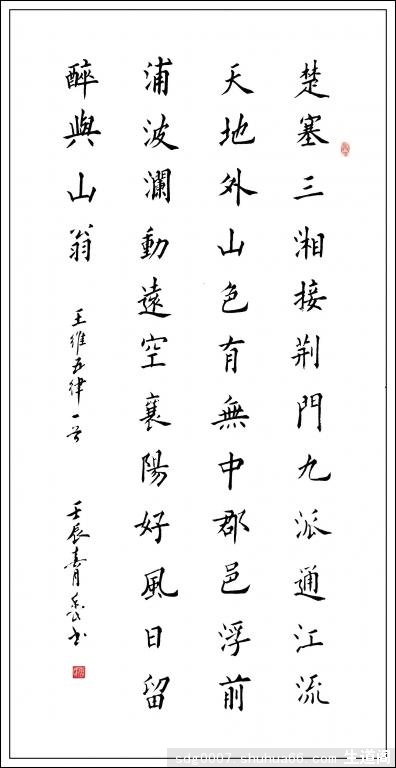 楚塞三湘接荊門九派通江流
天地外山色有無中郡邑浮前
浦波瀾動遠空襄陽好風日留
醉與山翁
王維五律一首
壬辰青岳书
sdg0007.shuhua66.com 生道阁